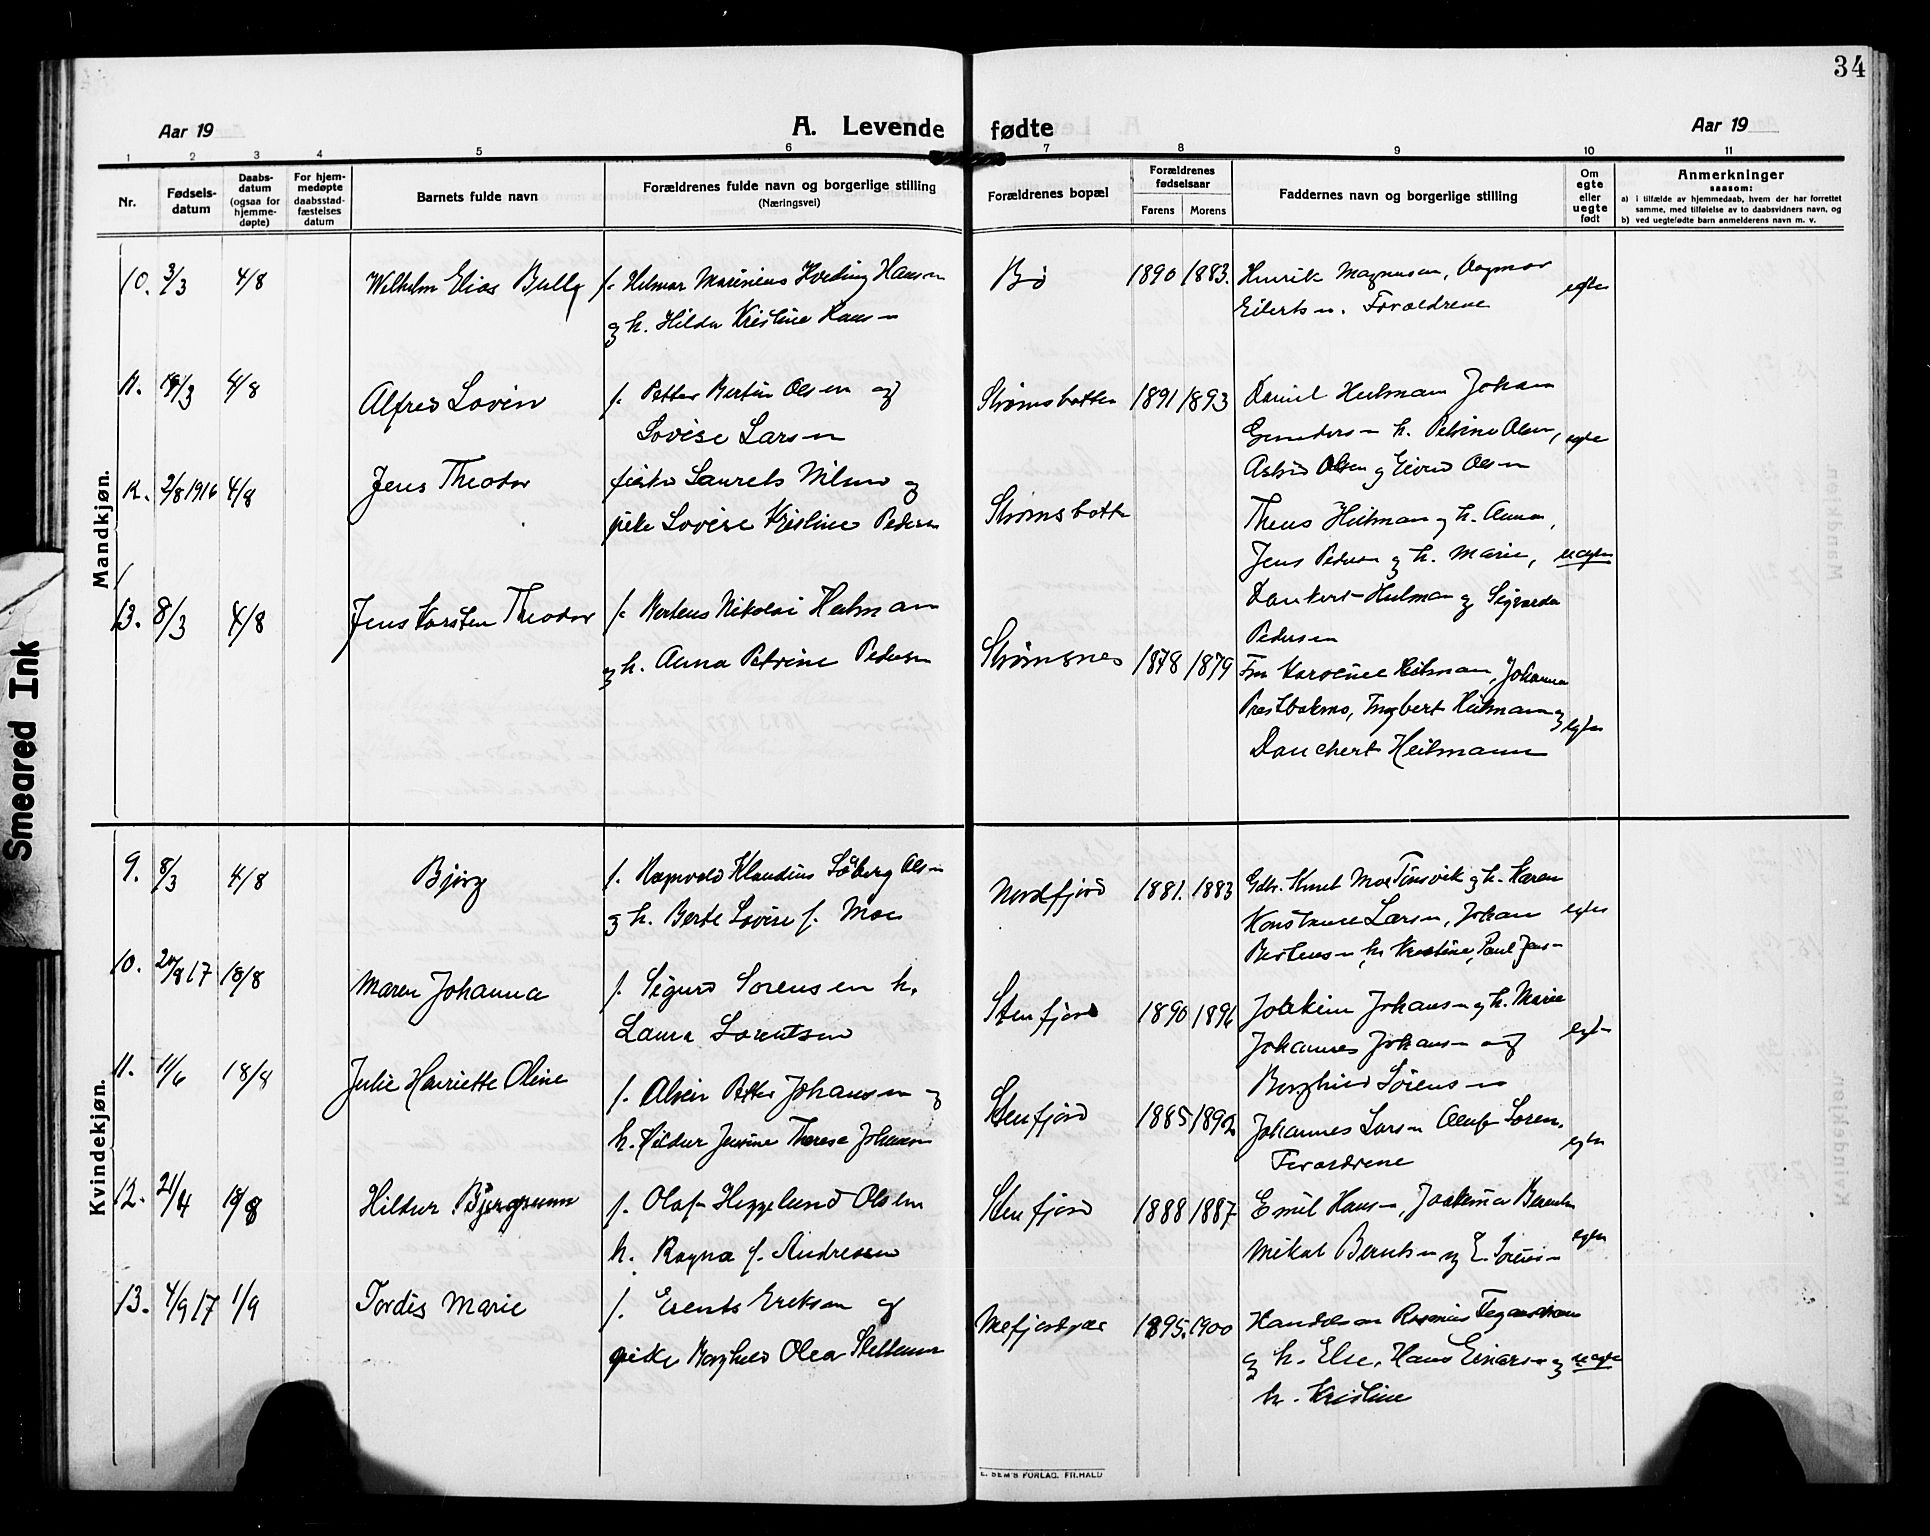 34
Aar 19
A. Levende fødte
Aar 19
1 2 3 4 5 6 7 8 9 10 11
Nr.
Fødsels-
datum
Daabs-
datum
(ogsaa for
hjemme-
døpte)
For hjem-
medøpte
daabsstad-
fæstelses
datum
Barnets fulde navn
Forældrenes fulde navn og borgerlige stilling
(Næringsvei)
Forældrenes bopæl
Forældrenes
fødselsaar
Farens Morens
Faddernes navn og borgerlige stilling
Om
egte
eller
uegte
født
Anmerkninger
saasom:
a) i tilfælde av hjemmedaab, hvem der har forrettet
samme, med tilføielse av to daabsvidners navn, og
b) ved uegtefødte barn anmelderens navn m. v.
Mandkjøn.
10. 3/3 4/8 Wilhelm Elias f. Helmar Hansen
og h. Hilda Kristine Hansen
Bø 1890 1883. Henrik Magnussen, Dagmar
Eilertsen. Forældrene
egte
11. /3 4/8 Alfred Lovin f. Petter Bertin Olsen og
Lovise Larsen
Strømsbotten 1891 1893 Daniel Heitman Johan
h. Petrine Olsen,
Astrid Olsen og Eivind Olsen
egte
12. 2/8 1916 4/8 Jens Theodor Laurets Nilsen og
pike Lovise Kristine Pedersen
Strømsbotten
Theus Heitman og h. Anna,
Jens Pedersen og h. Marie,
Dankert Heitman og Sigvarda
Pedersen
uegte
13. 8/3 4/8 Jens Karsten Theodor f. Mortens Nikolai Heitman
og h. Anna Petrine Pedersen
Strømsnes 1878 1879 Fru Karoline Heitman, Johanna
Prestbakmo, Ingbert Heitman og
Danchert Heitmann
egte
Kvindekjøn.
9. 8/3 4/8 Bjørg f. Ragnvald Klaudius Søberg Olsen
og h. Berte Lovise f. Moe
Nordfjord 1881. 1883 Gdbr. Knut Moe Finsvik og h. Karen
Konstance Larsen, Johan
Bertensen, h. Kristine, Paul Jensen
egte
10. 17 18/8 Maren Johanna f. Sigurd Sorensen h.
Laura Lorentsen
Stenfjord 1890 1896 Joakim Johansen og h. Marie
Johannes Johansen og
Borghild Sørensen
egte
11. 11/6 18/8 Julie Harriette Oline f. Alvin Petter Johansen og
h. Hildur Jensine Therese Johansen
Stenfjord 1885 1892 Johannes Larsen Oluf Soren.
Forældrene
egte
12. 21/4 18/8 Hildur Bjørgunn f. Olaf Heggelund Olsen
h. Ragna f. Andresen
Stenfjord 1888 1887 Emil Hansen, Joakima Berntsen
Mikal Berntsen og E. Sørensen
egte
13. 4/9 17 1/9 Tordis Marie f. Erents Eriksen og
pike Borghild Olea Stellesen
Mefjordvær 1895. 1900 Handelsm Rasmus
og h. Else, Hans Einarsen og
h. Kristine
uegte
E. SEM'S FORLAG. FR.HALD
Smeared Ink